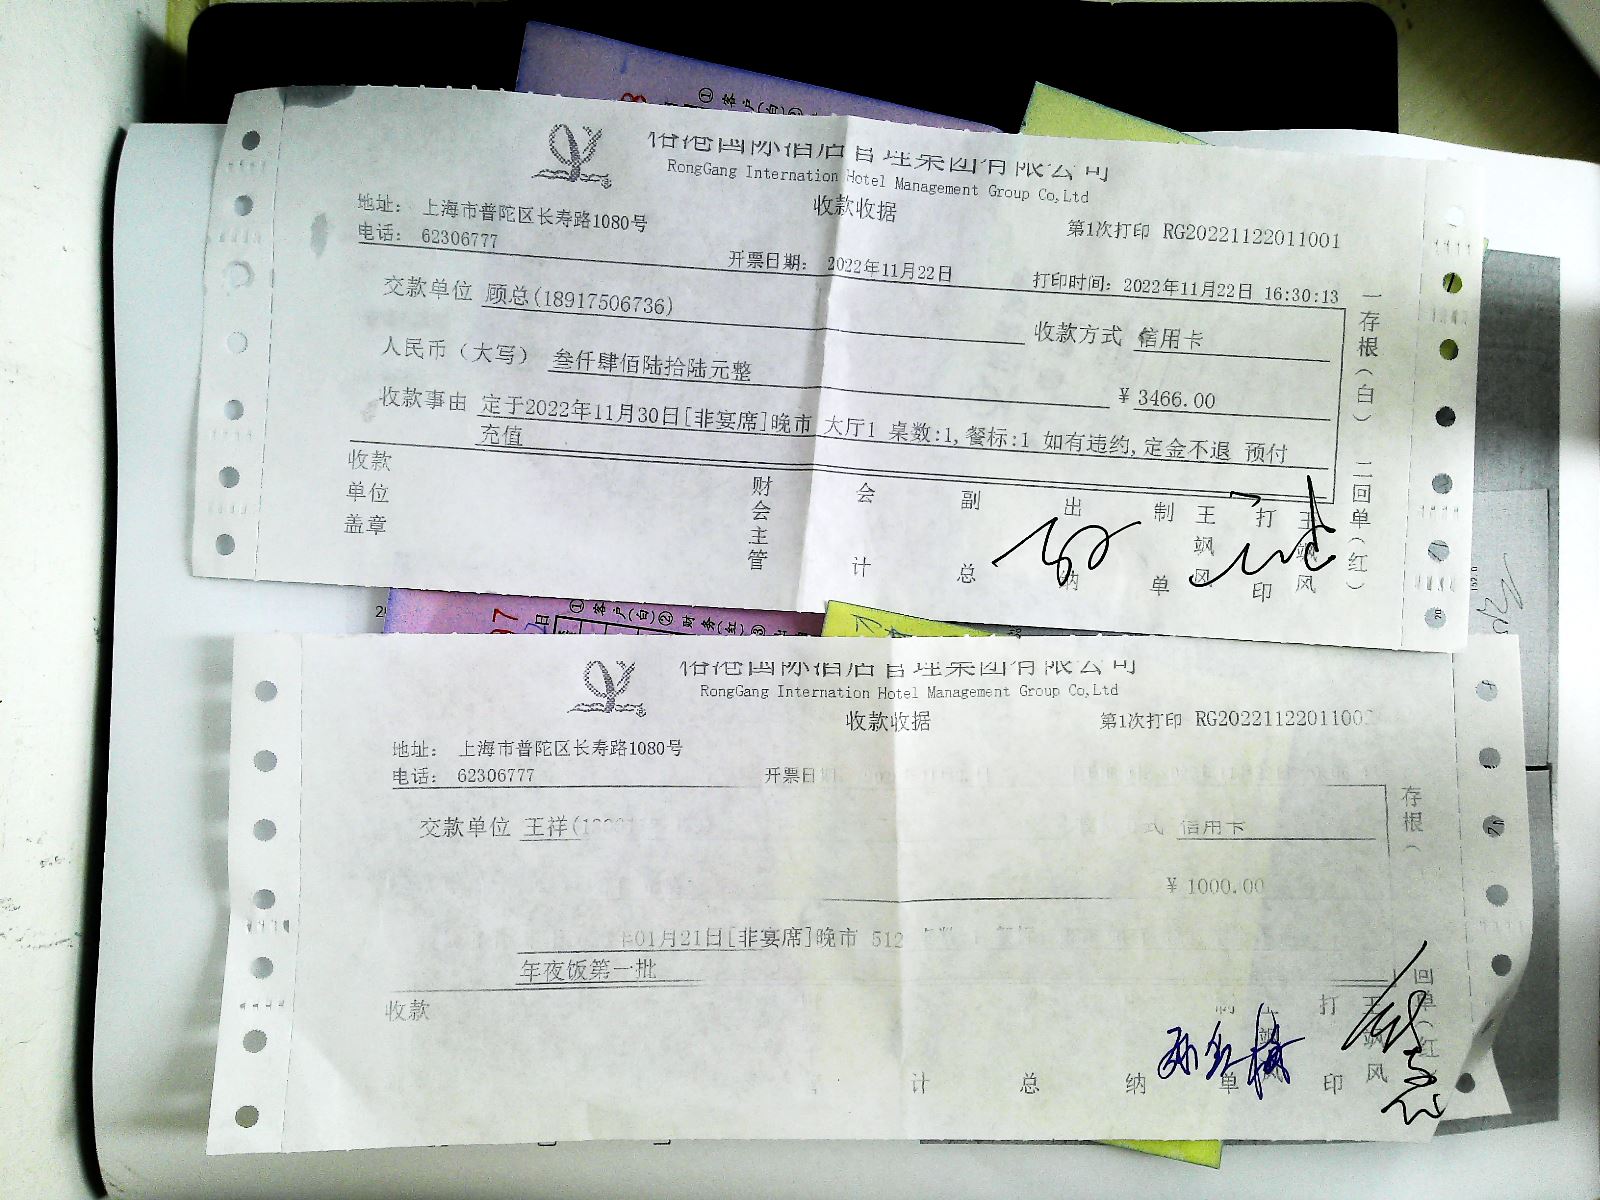 ①客户(白)②
国际酒店管理集团有限公司
RongGang Internation Hotel Management Group Co,Ltd
收款收据
地址： 上海市普陀区长寿路1080号
第1次打印 RG20221122011001
电话： 62306777
开票日期： 2022年11月22日
打印时间：2022年11月22日 16:30:13
交款单位 顾总(18917506736)
收款方式 信用卡
人民币（大写） 叁仟肆佰陆拾陆元整
¥ 3466.00
收款事由 定于2022年11月30日[非宴席]晚市 大厅1 桌数:1,餐标:1 如有违约,定金不退 预付
充值
收款单位盖章
财会主管
会计
副总
出纳
制单
王飒风
打印
王飒风
一存根（白） 二回单（红）
①客户(白)② 财务(红)③
国际酒店管理集团有限公司
RongGang Internation Hotel Management Group Co,Ltd
收款收据
第1次打印 RG2022112201100
地址： 上海市普陀区长寿路1080号
电话： 62306777
开票日期
交款单位 王祥(1
式 信用卡
¥ 1000.00
01月21日[非宴席]晚市 512
年夜饭第一批
收款
计
总
纳
制单
打印
王飒风
存根（
回单（红